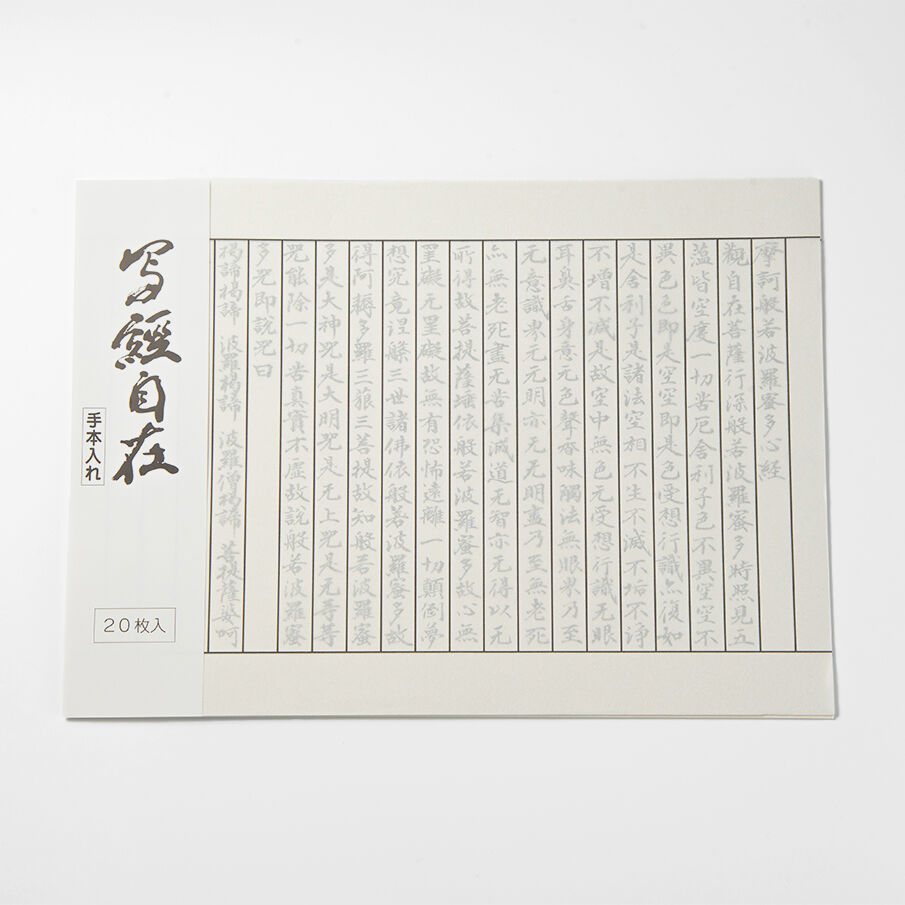 摩訶般若波羅蜜多心経
觀自在菩薩行深般若波羅蜜多時照見五
蘊皆空度一切苦厄舍利子色不異空空不
異色色即是空空即是色受想行識亦復如
是舍利子是諸法空相不生不滅不垢不淨
不增不減是故空中無色无受想行識无眼
耳鼻舌身意无色聲香味觸法無眼界乃至
无意識界无无明亦无无明盡乃至無老死
亦無老死盡无苦集滅道无智亦无得以无
所得故菩提薩埵依般若波羅蜜多故心無
罣礙无罣礙故無有恐怖遠離一切顛倒夢
想究竟涅槃三世諸佛依般若波羅蜜多故
得阿耨多羅三藐三菩提故知般若波羅蜜
多是大神咒是大明咒是无上咒是无等等
咒能除一切苦真實不虛故說般若波羅蜜
多咒即說咒曰
揭諦揭諦 波羅揭諦 波羅僧揭諦 菩提薩婆呵
写經自在
手本入れ
20枚入